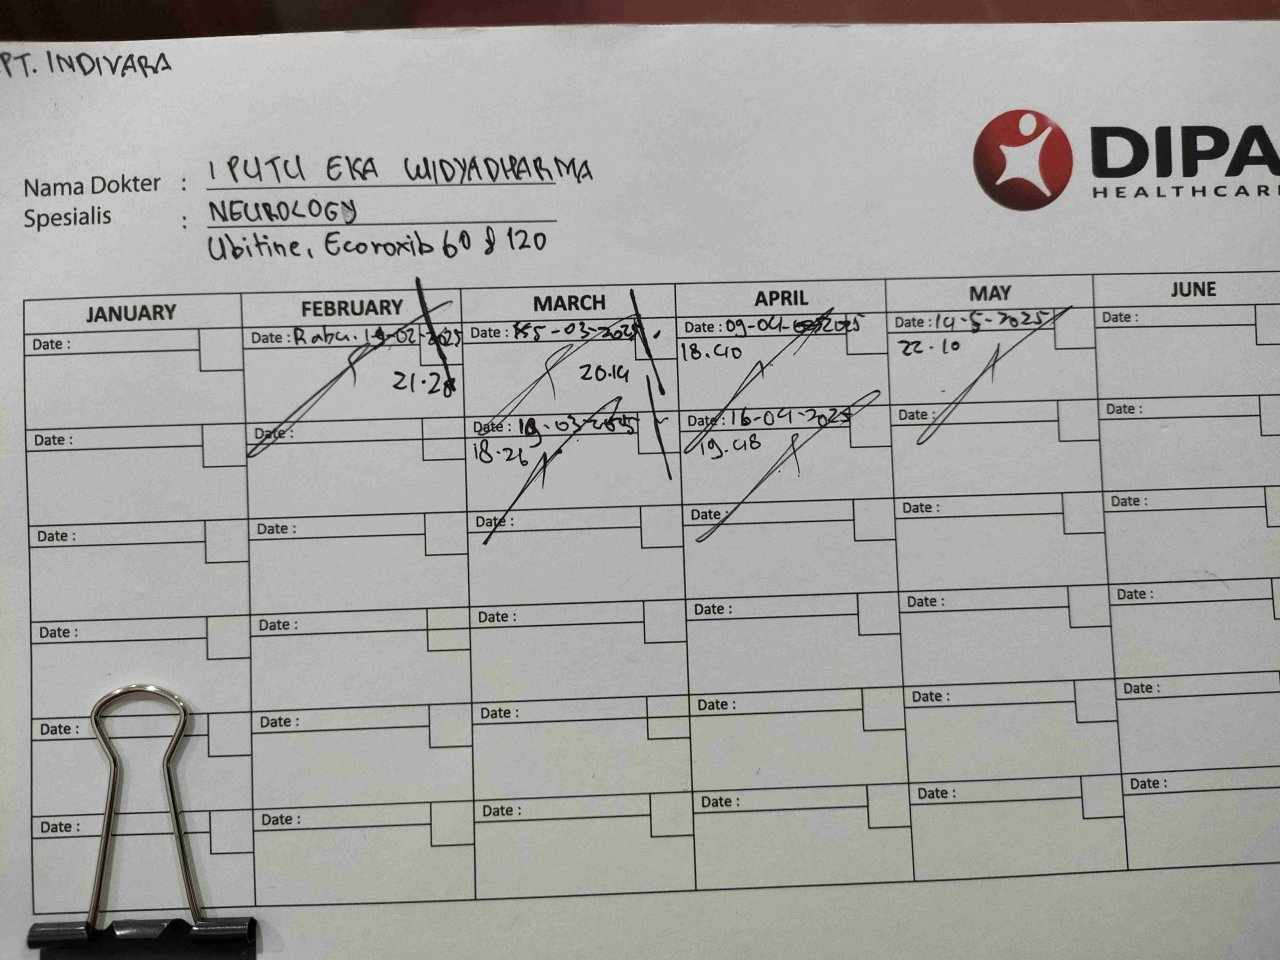 PT. INDIVARA
DIPA
HEALTHCARE
Nama Dokter : I PUTU EKA WIDYADHARMA
Spesialis : NEUROLOGY
Ubitine, Ecoroxib 60 & 120
JANUARY FEBRUARY MARCH APRIL MAY JUNE
Date : Date : Rabu. 19-02-2025 Date : 5-03-2025 Date : 09-04-2025 Date : 14-5-2025 Date :
21.28 20.14 18.40 22.10
Date : Date : Date : 19-03-2025 Date : 16-04-2025 Date : Date :
18.26 19.48
Date : Date : Date : Date : Date : Date :
Date : Date : Date : Date : Date : Date :
Date : Date : Date : Date : Date : Date :
Date : Date : Date : Date : Date : Date :